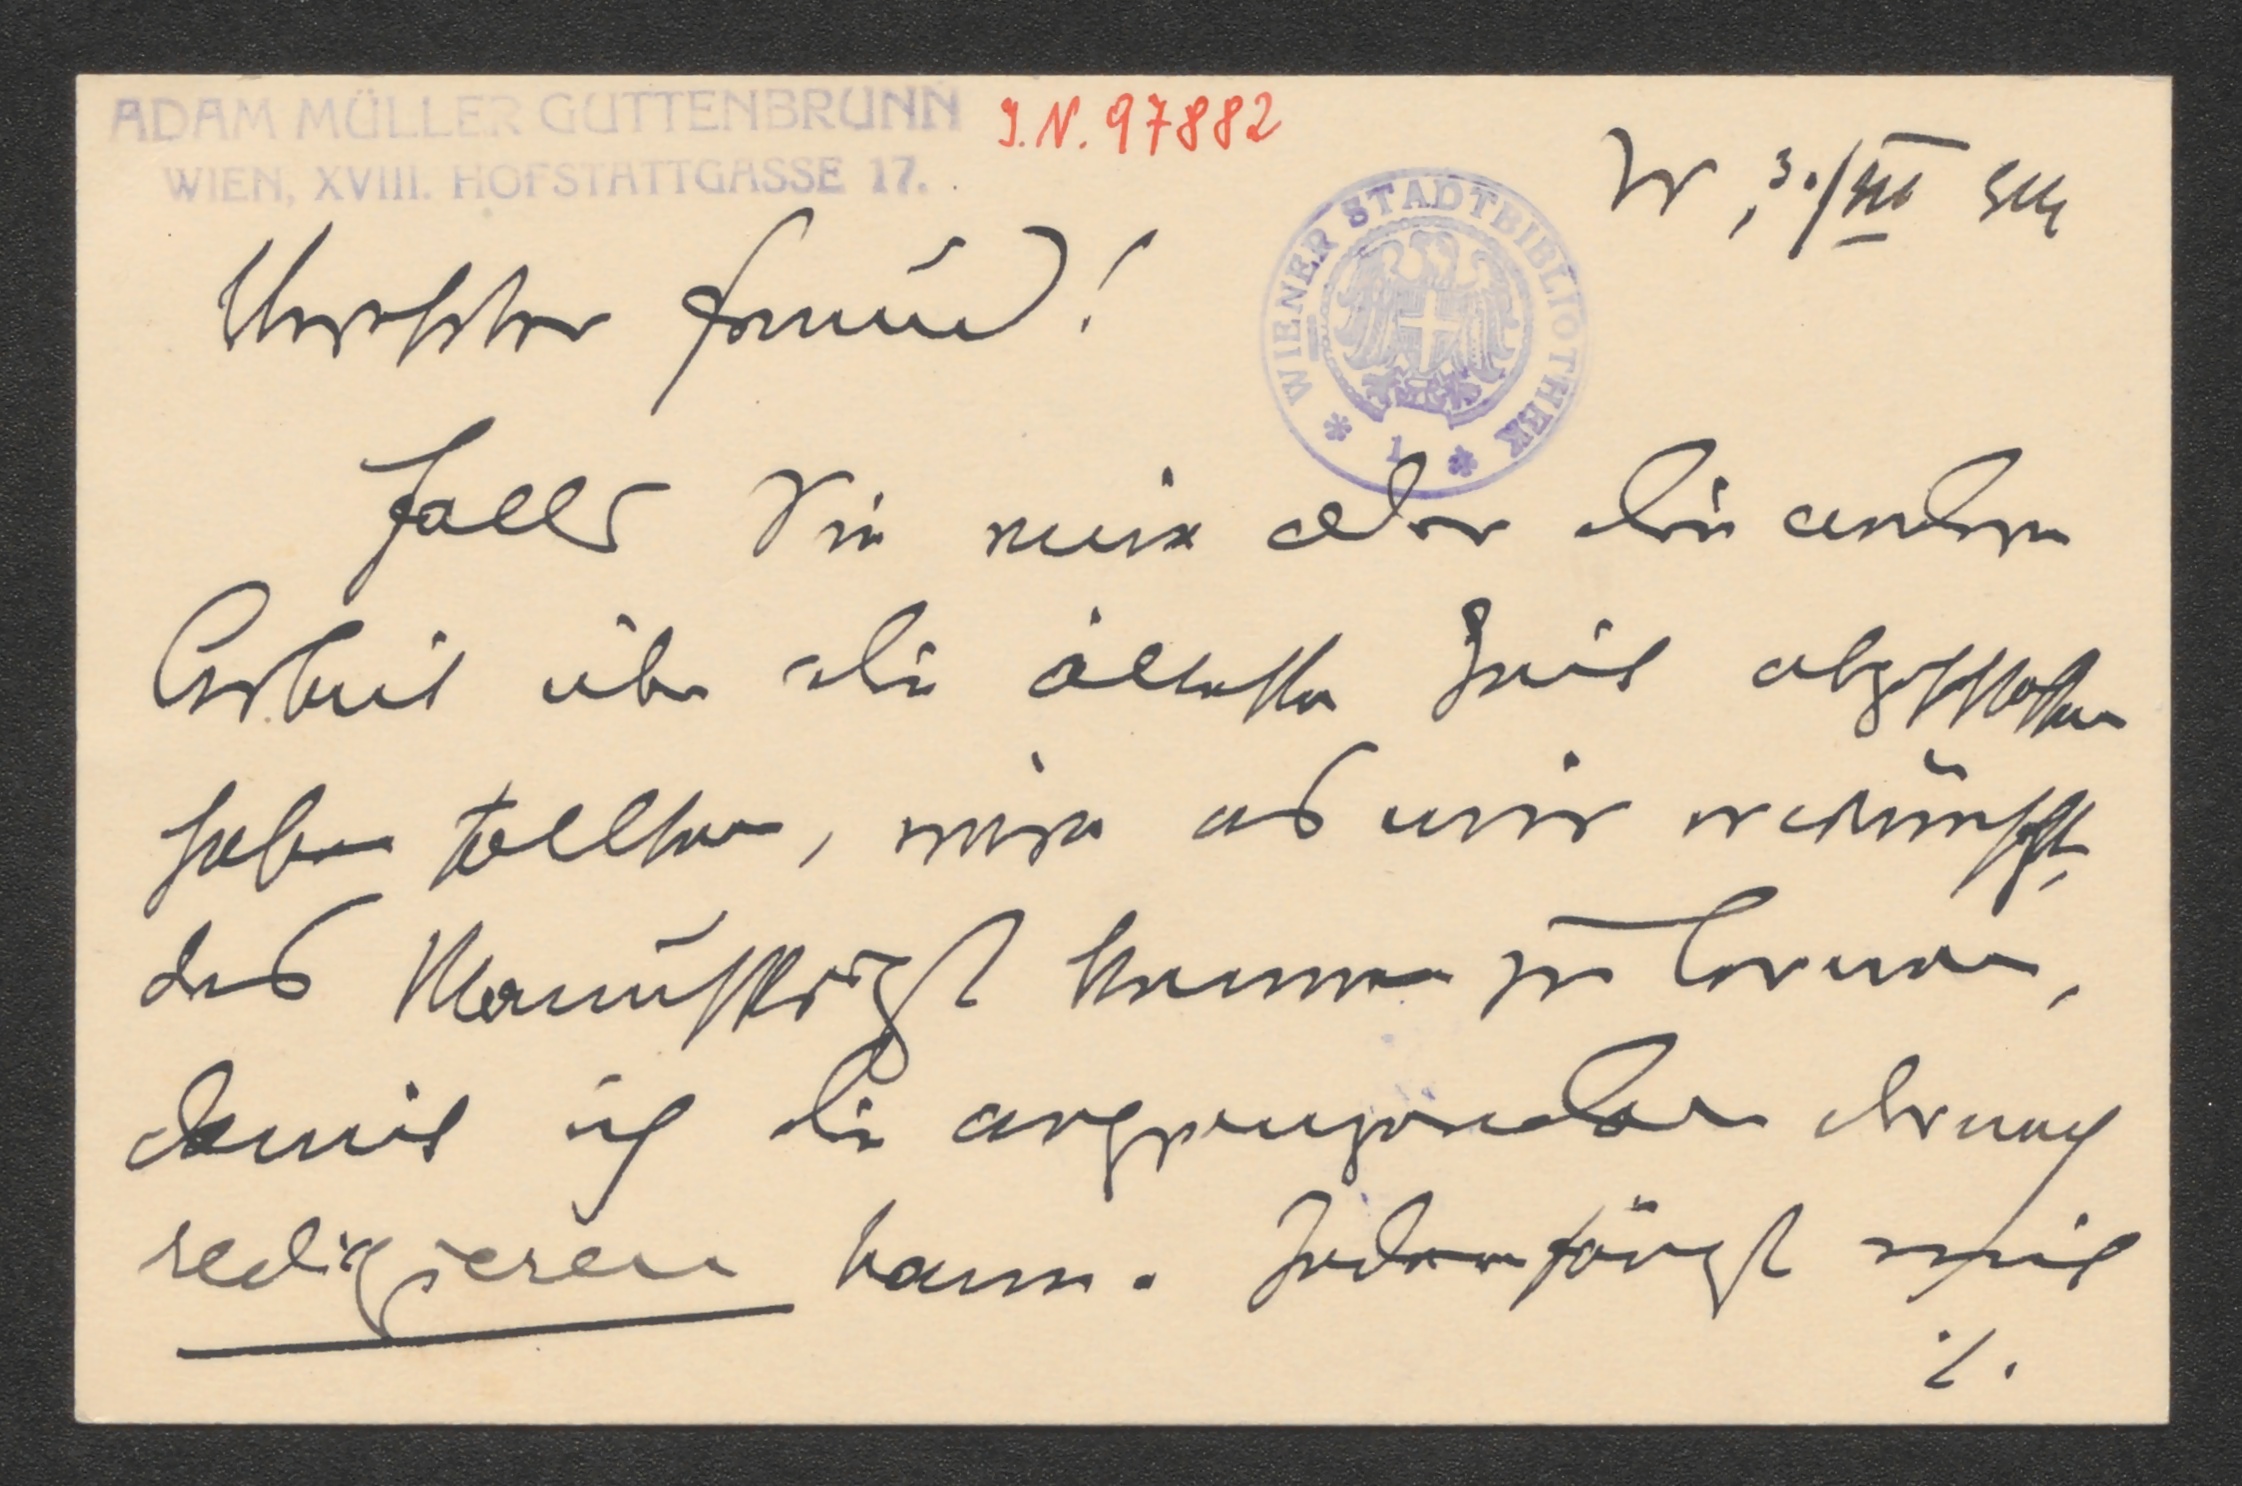 ADAM MÜLLER GUTTENBRUNN
WIEN, XVIII. HOFSTATTGASSE 17.
I.N. 97882
WIENER STADTBIBLIOTHEK
1
W, 3./VIII
Verehrter Freund!
Falls Sie eine oder die andere
Arbeit über die älteste Zeit abgeschlossen
haben sollten, wäre es mir erwünscht,
das Manuskript kennen zu lernen,
damit ich die angrenzenden darnach
redigieren kann. Jedenfalls
./.